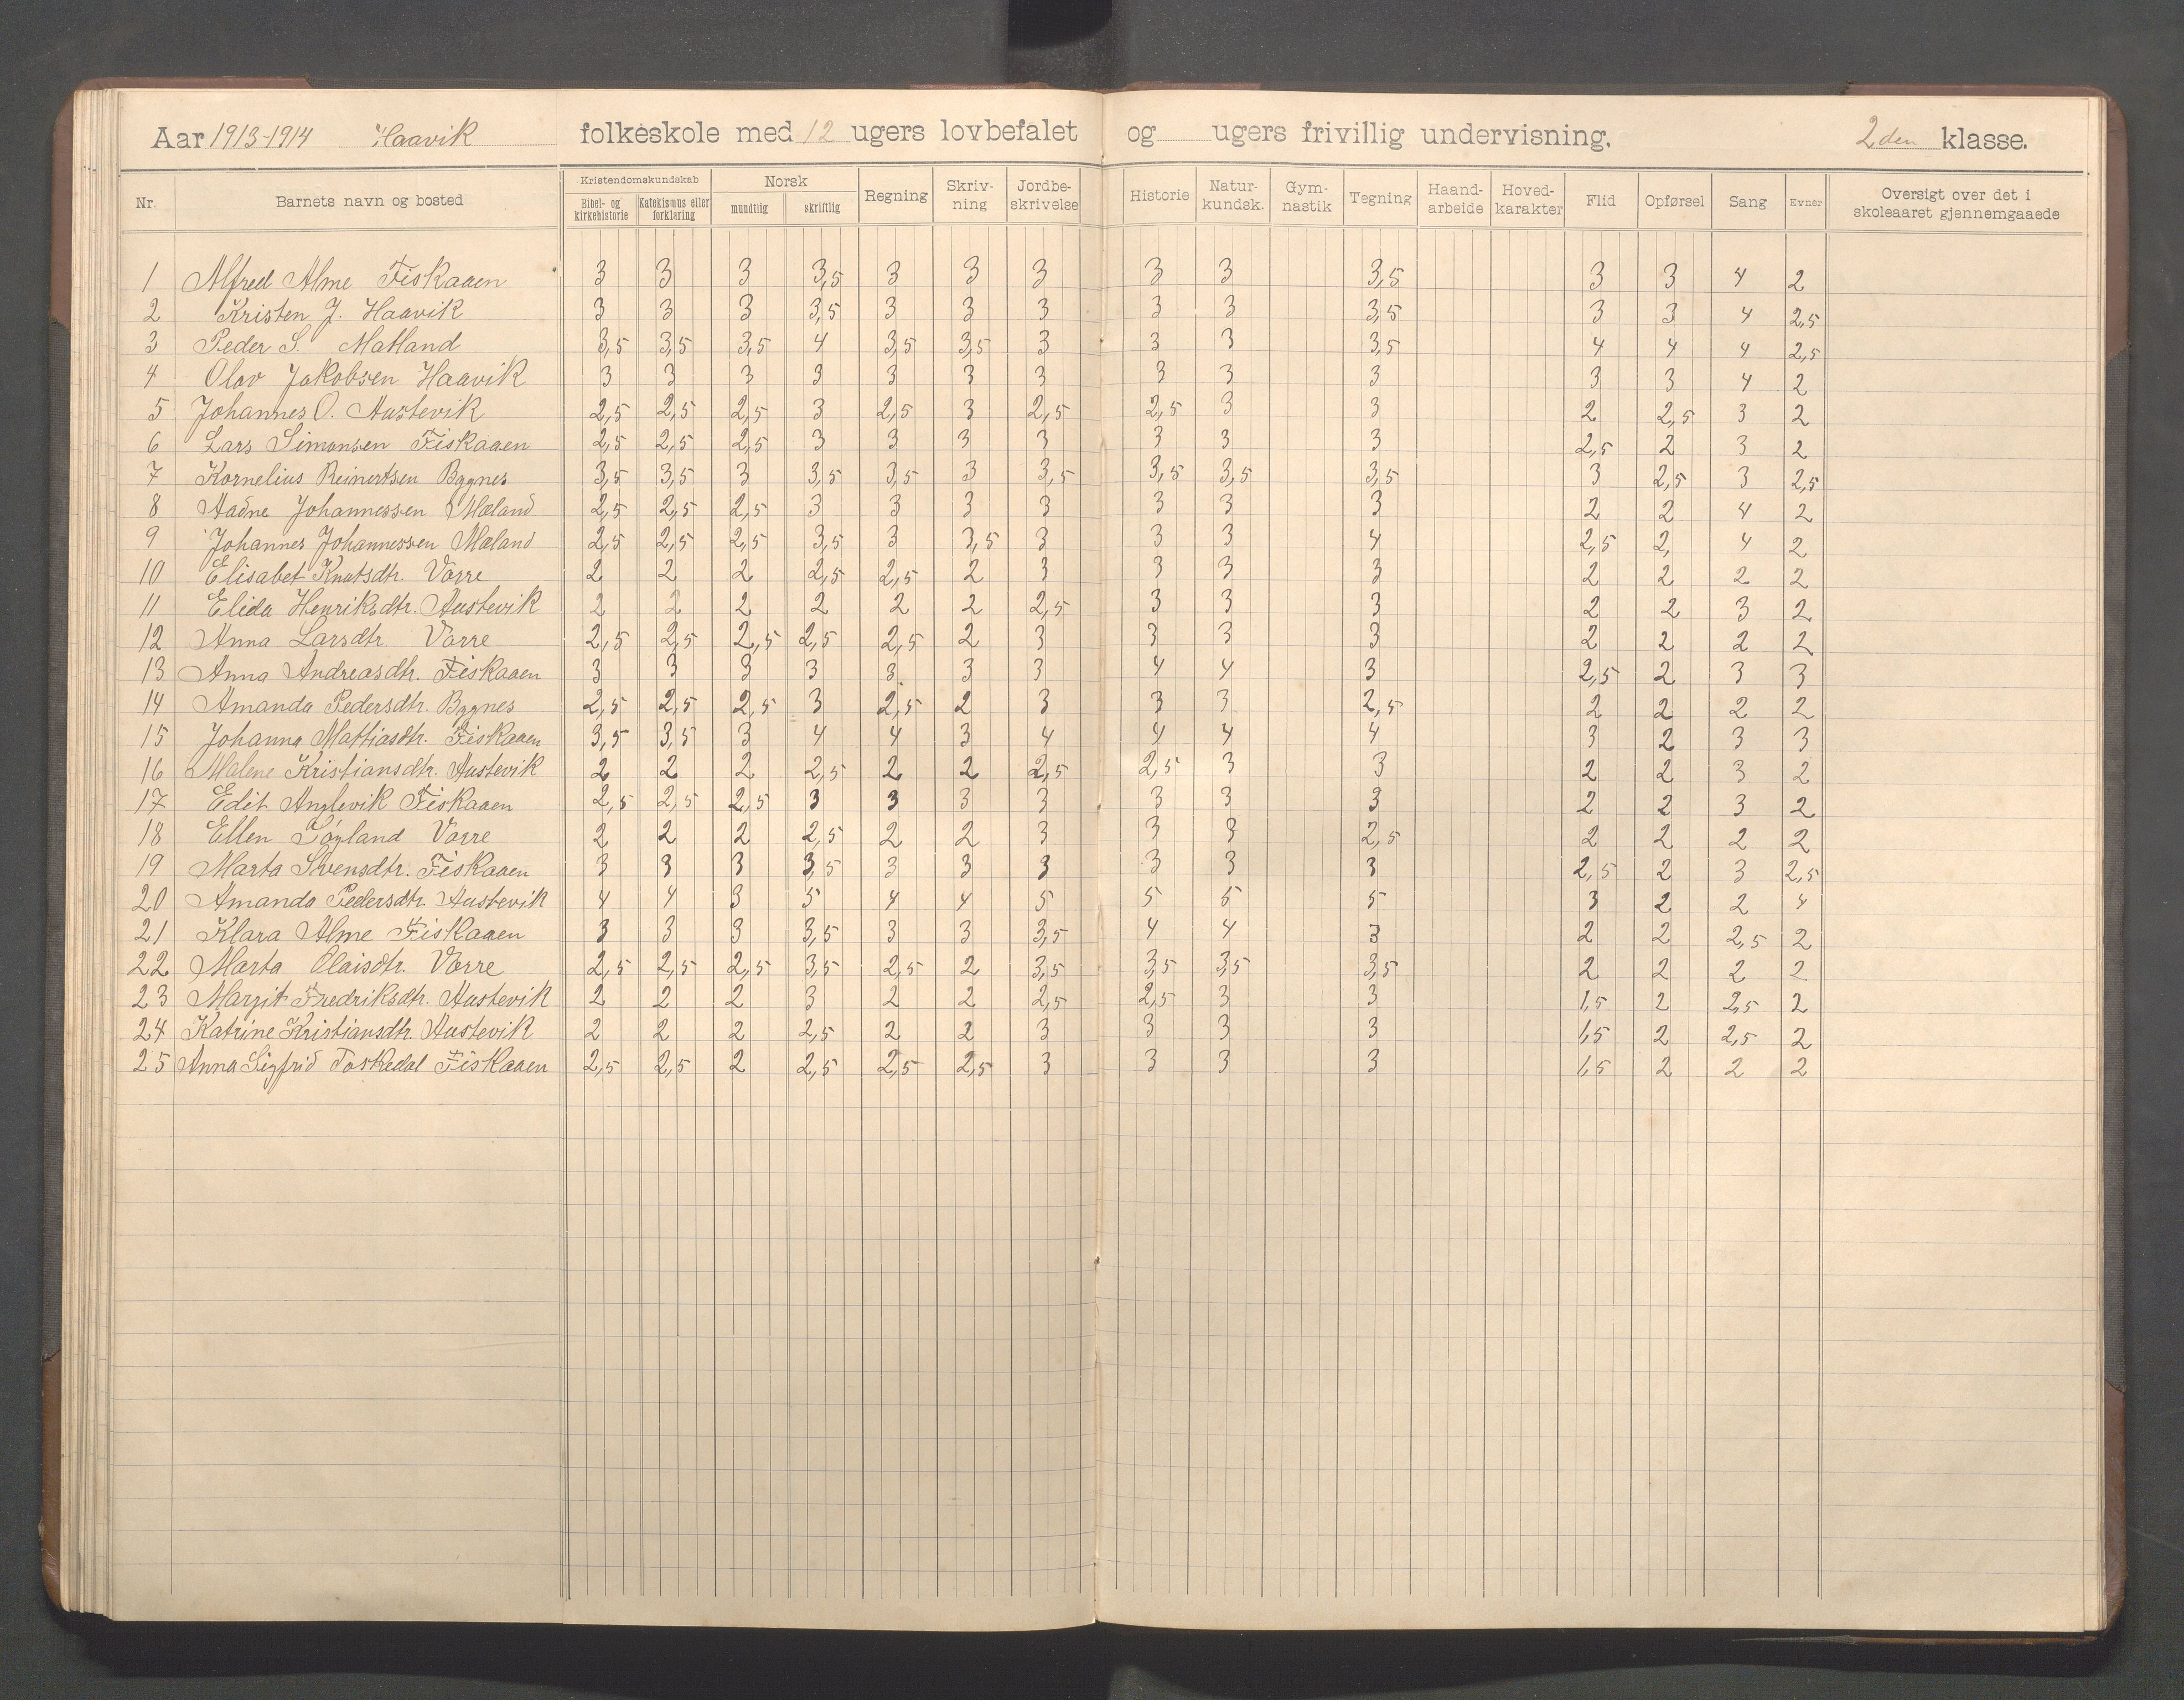 Aar 1913-1914 Haavik folkeskole med 12 ugers lovbefalet og ugers frivillig undervisning. 2den klasse.
Nr. Barnets navn og bosted Kristendomskundskab Bibel- og kirkehistorie Katekismus eller forklaring Norsk mundtlig skriftlig Regning Skriv-ning Jordbe-skrivelse Historie Natur-kundsk. Gym-nastik Tegning Haand-arbeide Hoved-karakter Flid Opførsel Sang Evner Oversigt over det i skoleaaret gjennemgaaede
1 Alfred Alme Fiskaaen 3 3 3 3,5 3 3 3 3 3 3,5 3 3 4 2
2 Kristen J. Haavik 3 3 3 3,5 3 3 3 3 3 3,5 3 3 4 2,5
3 Peder S. Matland 3,5 3,5 3,5 4 3,5 3,5 3 3 3 3,5 4 4 4 2,5
4 Olav Jakobsen Haavik 3 3 3 3 3 3 3 3 3 3 3 3 4 2
5 Johannes O. Austevik 2,5 2,5 2,5 3 2,5 3 2,5 2,5 3 3 2 2,5 3 2
6 Lars Simonsen Fiskaaen 2,5 2,5 2,5 3 3 3 3 3 3 3 2,5 2 3 2
7 Kornelius Reinertsen Bygnes 3,5 3,5 3 3,5 3,5 3 3,5 3,5 3,5 3,5 3 2,5 3 2,5
8 Aadne Johannessen Mæland 2,5 2,5 2,5 3 3 3 3 3 3 3 2 2 4 2
9 Johannes Johannessen Mæland 2,5 2,5 2,5 3,5 3 3,5 3 3 3 4 2,5 2, 4 2
10 Elisabet Knutsdtr. Vorre 2 2 2 2,5 2,5 2 3 3 3 3 2 2 2 2
11 Elida Henriksdtr. Austevik 2 2 2 2 2 2 2,5 3 3 3 2 2 3 2
12 Anna Larsdtr. Vorre 2,5 2,5 2,5 2,5 2,5 2 3 3 3 3 2 2 2 2
13 Anna Andreasdtr. Fiskaaen 3 3 3 3 3 3 3 4 4 3 2,5 2 3 3
14 Amanda Pedersdtr. Bygnes 2,5 2,5 2,5 3 2,5 2 3 3 3 2,5 2 2 2 2
15 Johanna Mattiasdtr. Fiskaaen 3,5 3,5 3 4 4 3 4 4 4 4 3 2 3 3
16 Malene Kristiansdtr. Austevik 2 2 2 2,5 2 2 2,5 2,5 3 3 2 2 3 2
17 Edit Anglevik Fiskaaen 2,5 2,5 2,5 3 3 3 3 3 3 3 2 2 3 2
18 Ellen Vorre 2 2 2 2,5 2 2 3 3 3 2,5 2 2 2 2
19 Marta Svensdtr. Fiskaaen 3 3 3 3,5 3 3 3 3 3 3 2,5 2 3 2,5
20 Amanda Pedersdtr. Austevik 4 4 3 5 4 4 5 5 5 5 3 2 2 4
21 Klara Alme Fiskaaen 3 3 3 3,5 3 3 3,5 4 4 3 2 2 2,5 2
22 Marta Olaisdtr. Vorre 2,5 2,5 2,5 3,5 2,5 2 3,5 3,5 3,5 3,5 2 2 2 2
23 Margit Fredriksdtr. Austevik 2 2 2 3 2 2 2,5 2,5 3 3 1,5 2 2,5 2
24 Katrine Kristiansdtr. Austevik 2 2 2 2,5 2 2 3 3 3 3 1,5 2 2,5 2
25 Anna Sigfrid Toskedal Fiskaaen 2,5 2,5 2 2,5 2,5 2,5 3 3 3 3 1,5 2 2 2